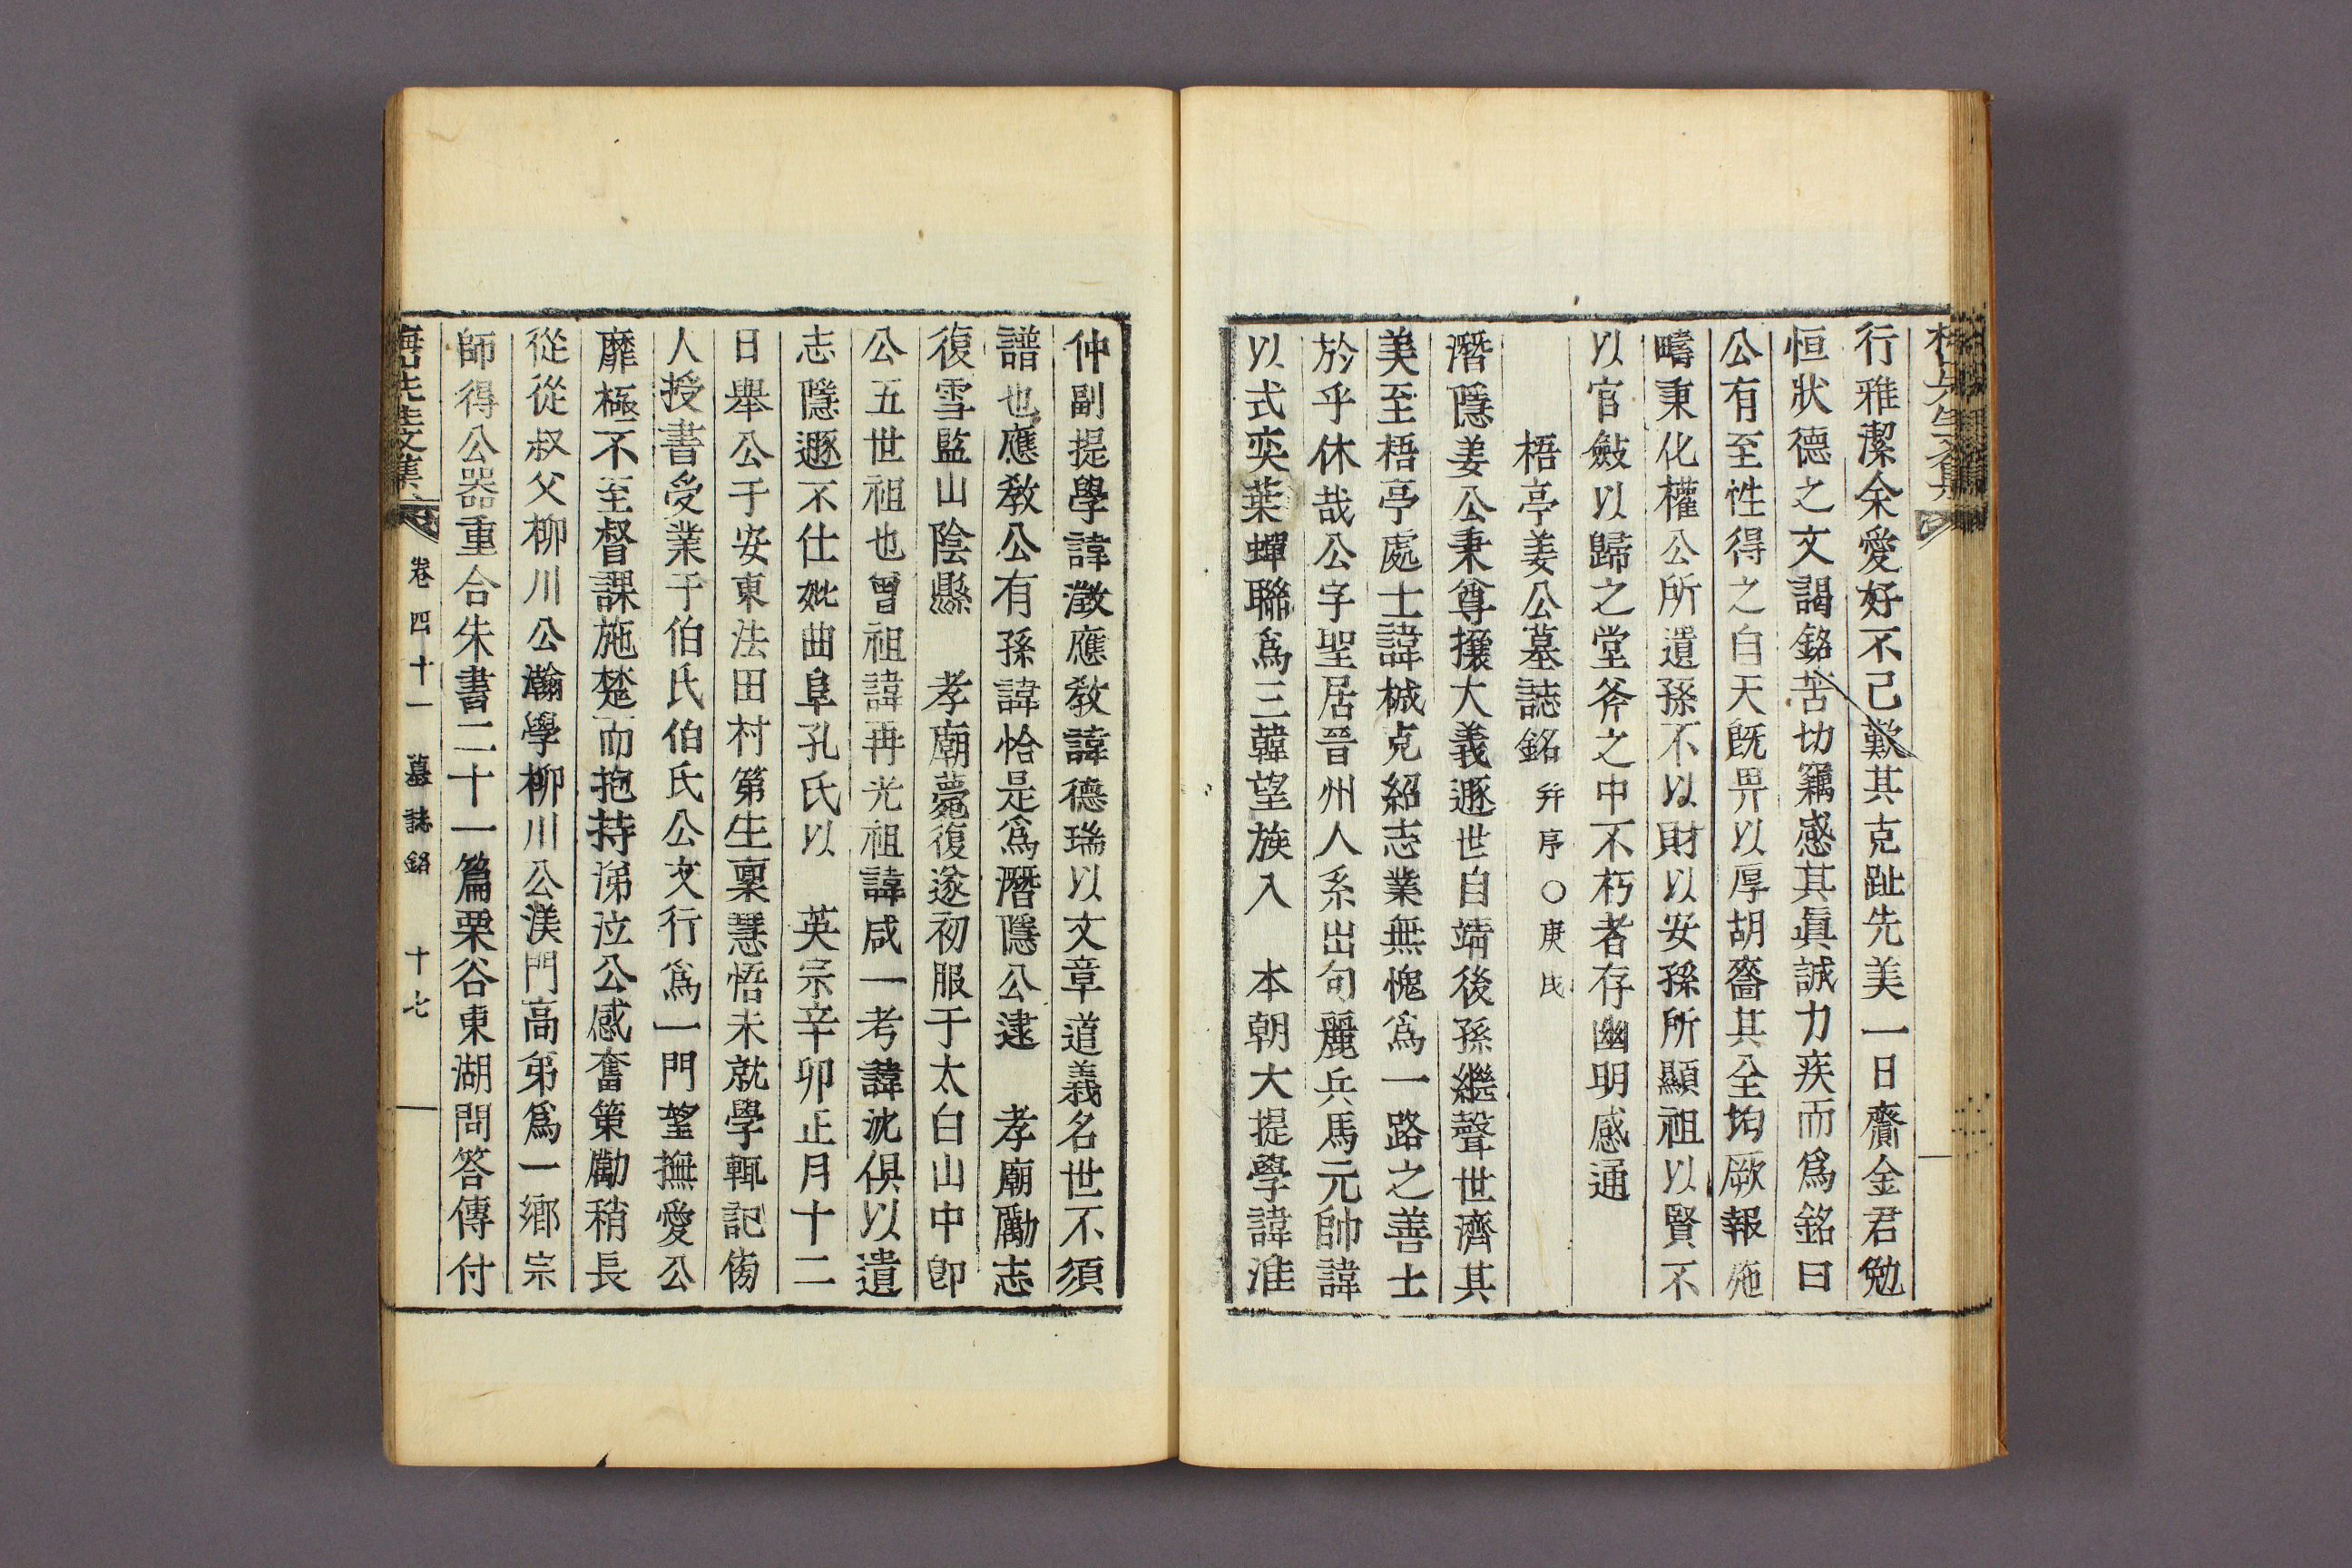 行雅潔余愛好不已歎其克趾先美一日齎金君勉
恒狀德之文謁銘苦切竊感其眞誠力疾而爲銘曰
公有至性得之自天旣畀以厚胡嗇其全均厥報施
疇秉化權公所遺孫不以財以安孫所顯祖以賢不
以官斂以歸之堂斧之中不朽者存幽明感通
梧亭姜公墓誌銘 幷序○庚戌
潛隱姜公秉尊攘大義遯世自靖後孫繼聲世濟其
美至梧亭處士諱棫克紹志業無愧爲一路之善士
於乎休哉公字聖居晉州人系出句麗兵馬元帥諱
以式奕葉蟬聯爲三韓望族入 本朝大提學諱淮
仲副提學諱澂應敎諱德瑞以文章道義名世不須
譜也應敎公有孫諱恰是爲潛隱公逮 孝廟勵志
復雪監山陰縣 孝廟薨復遂初服于太白山中卽
公五世祖也曾祖諱再光祖諱咸一考諱沇俱以遺
志隱遯不仕妣曲阜孔氏以 英宗辛卯正月十二
日舉公于安東法田村第生稟慧悟未就學輒記傍
人授書受業于伯氏伯氏公文行爲一門望撫愛公
靡極不至督課施楚而抱持涕泣公感奮策勵稍長
從從叔父柳川公瀚學柳川公渼門高弟爲一鄉宗
師得公器重合朱書二十一篇栗谷東湖問答傳付
梅山先生文集 卷四十一 墓誌銘 十七